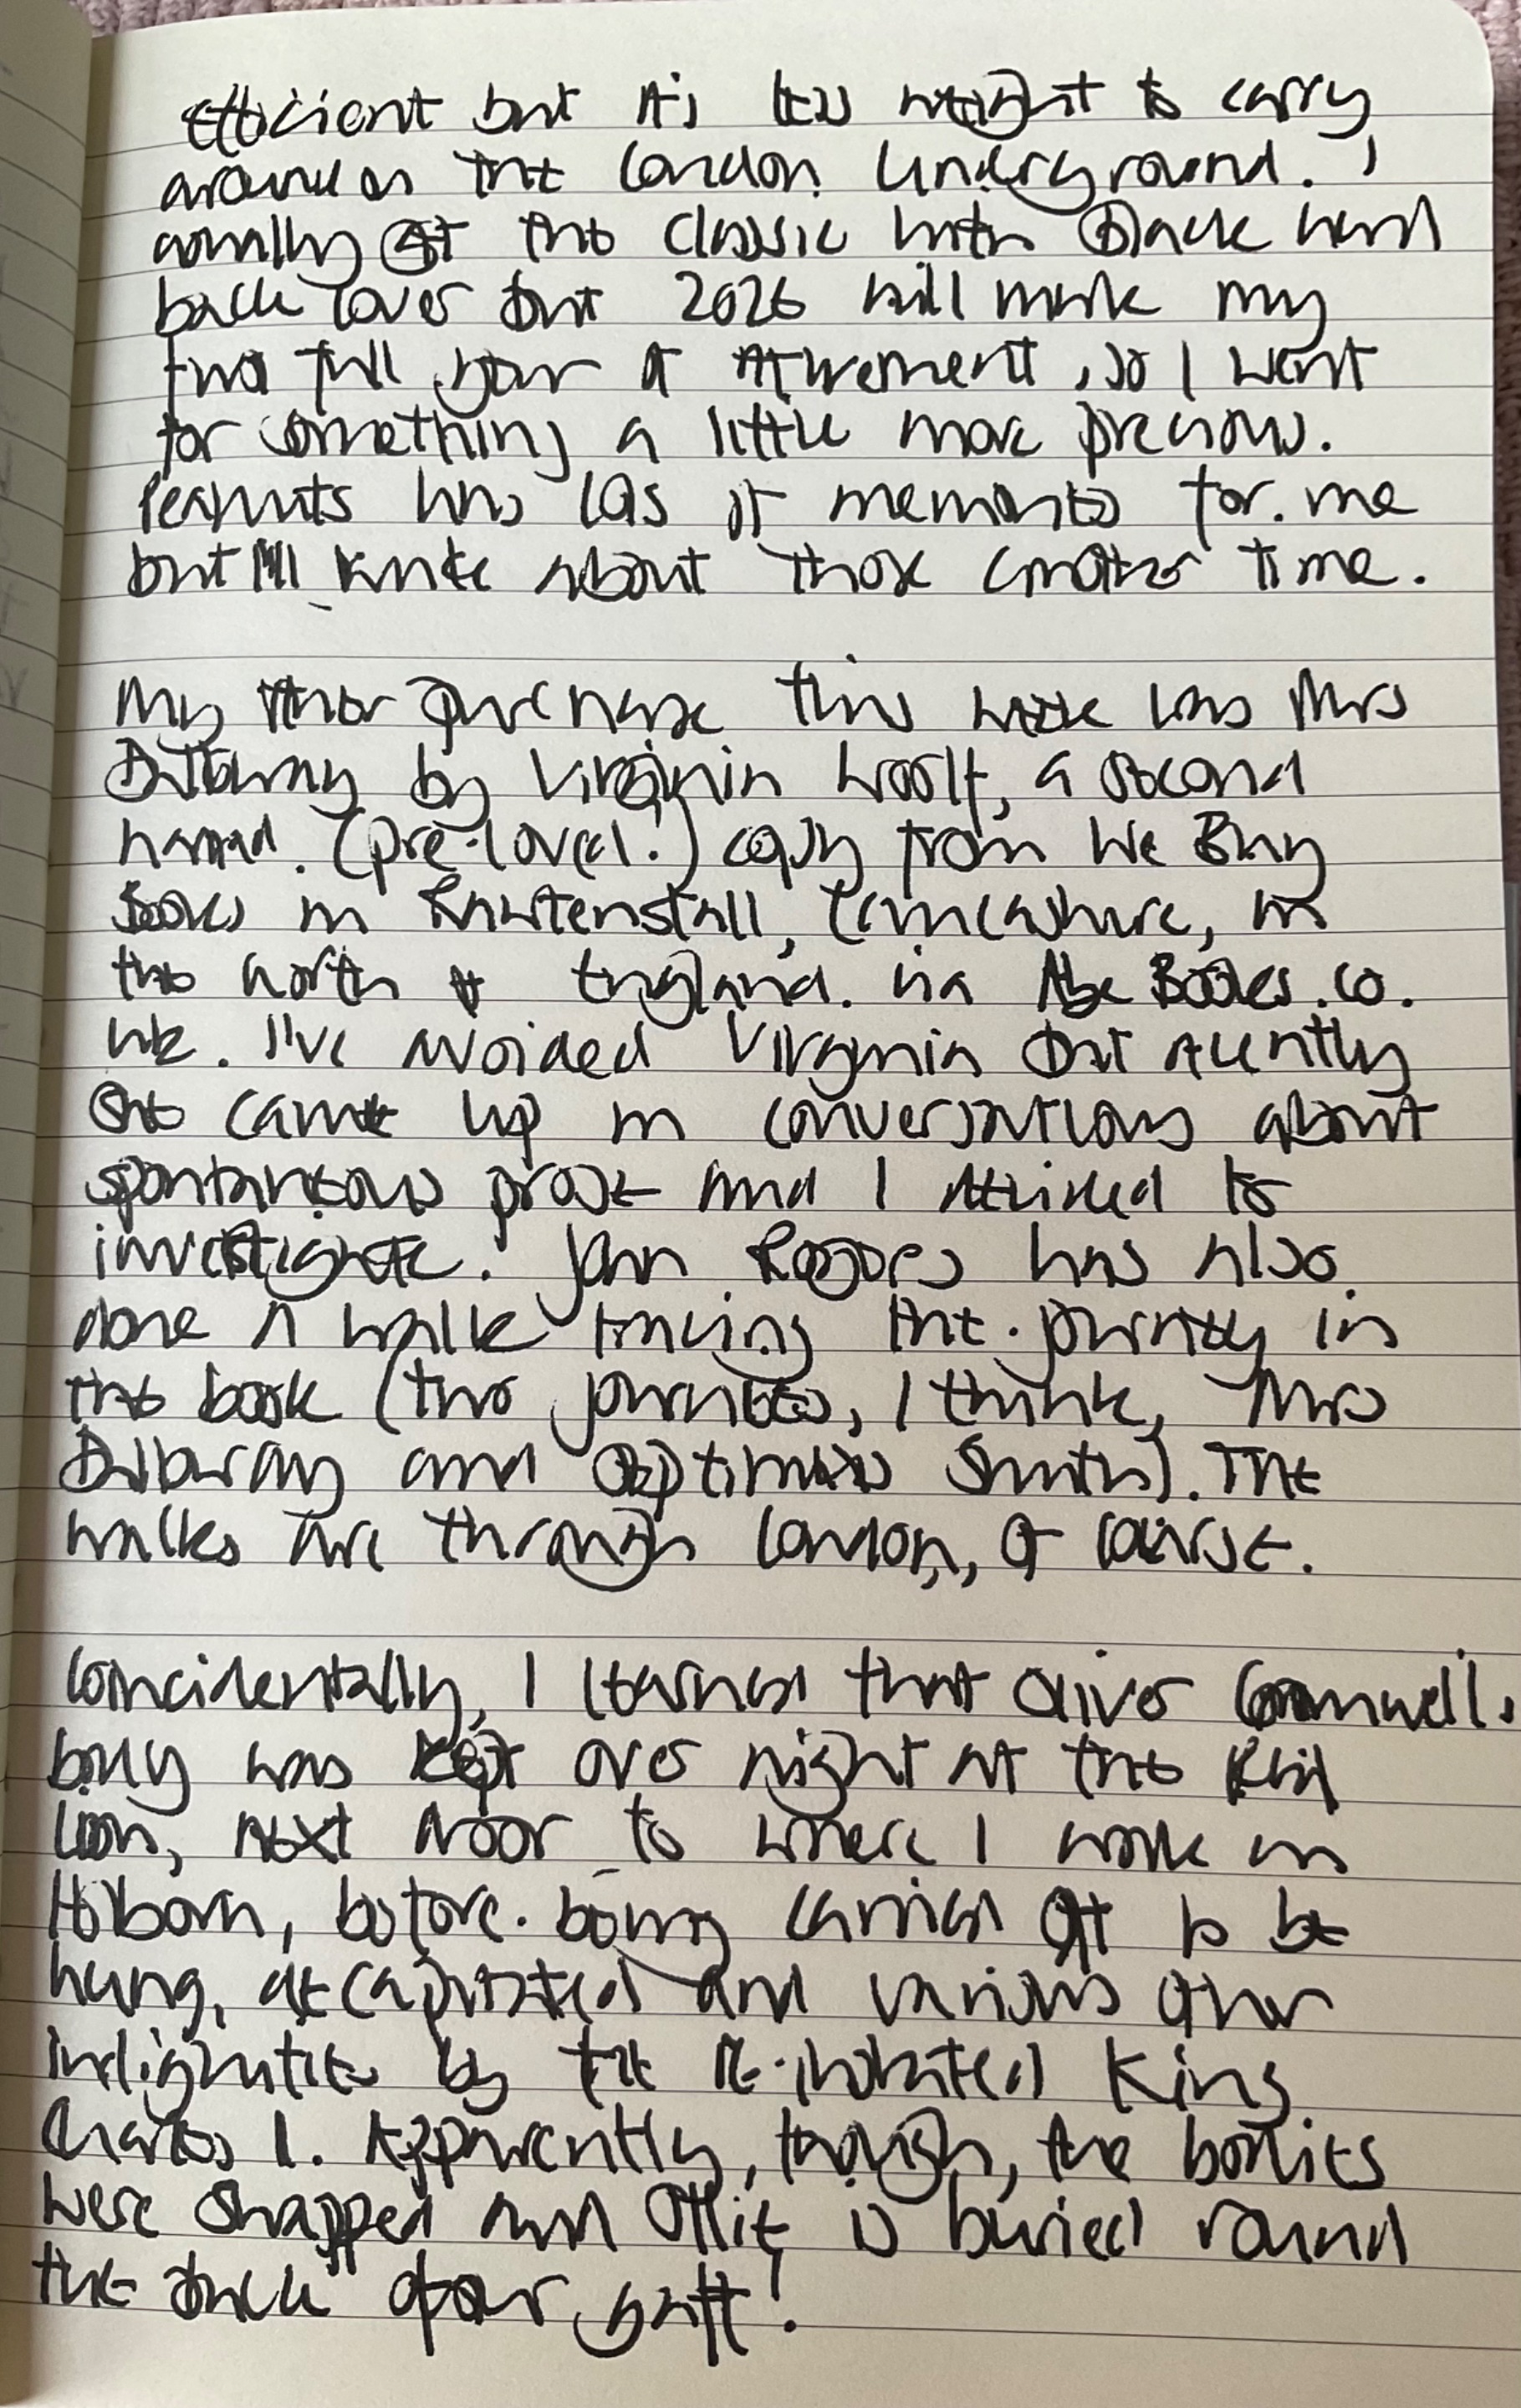 efficient but it's less weight to carry
around on the London Underground. I
usually get the classic with black hard
back cover but 2026 will mark my
first full year of retirement, so I went
for something a little more precious.
Peanuts has lots of memories for me
but I'll write about those another time.
My other purchase this week was Mrs
Dalloway by Virginia Woolf, a second
hand (pre-loved!) copy from We Buy
Books in Rawtenstall, Lancashire, in
the north of England. via Abe Books.co.
uk. I've avoided Virginia but recently
she came up in conversations about
spontaneous prose and I decided to
investigate. John Rogers has also
done a walk tracing the journey in
the book (two journeys, I think, Mrs
Dalloway and Septimus Smith). The
walks are through London, of course.
Coincidentally, I learned that Oliver Cromwell's
body was kept over night at the Red
Lion, next door to where I work in
Holborn, before being carried off to be
hung, decapitated and various other
indignities by the re-instated King
Charles I. Apparently, though, the bodies
were swapped and Ollie is buried round
the back of our gaff!